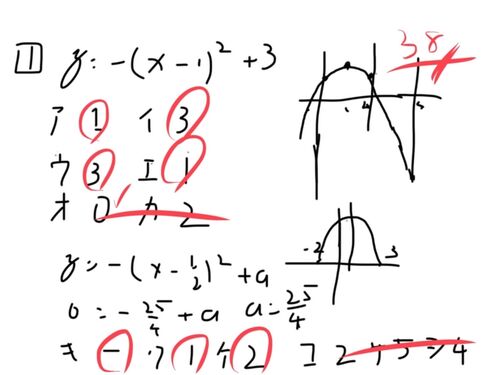 1 y = -(x - 1)² + 3
38
ア 1 イ 3
ウ 3 エ 1
オ 0 カ 2
-2 3
y = -(x - 1/2)² + a
0 = -25/4 + a a = 25/4
キ - ク 1 ケ 2 コ 2 4 5 シ 4